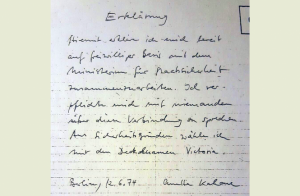 Erklärung
Hiermit erkläre ich mich bereit
auf freiwilliger Basis mit dem
Ministerium für Staatssicherheit
zusammenzuarbeiten. Ich ver-
pflichte mich mit niemanden
über diese Verbindung zu sprechen.
Aus Sicherheitsgründen wähle ich
mir den Decknamen Victoria
Berlin, 12.6.74 Anetta Kahane